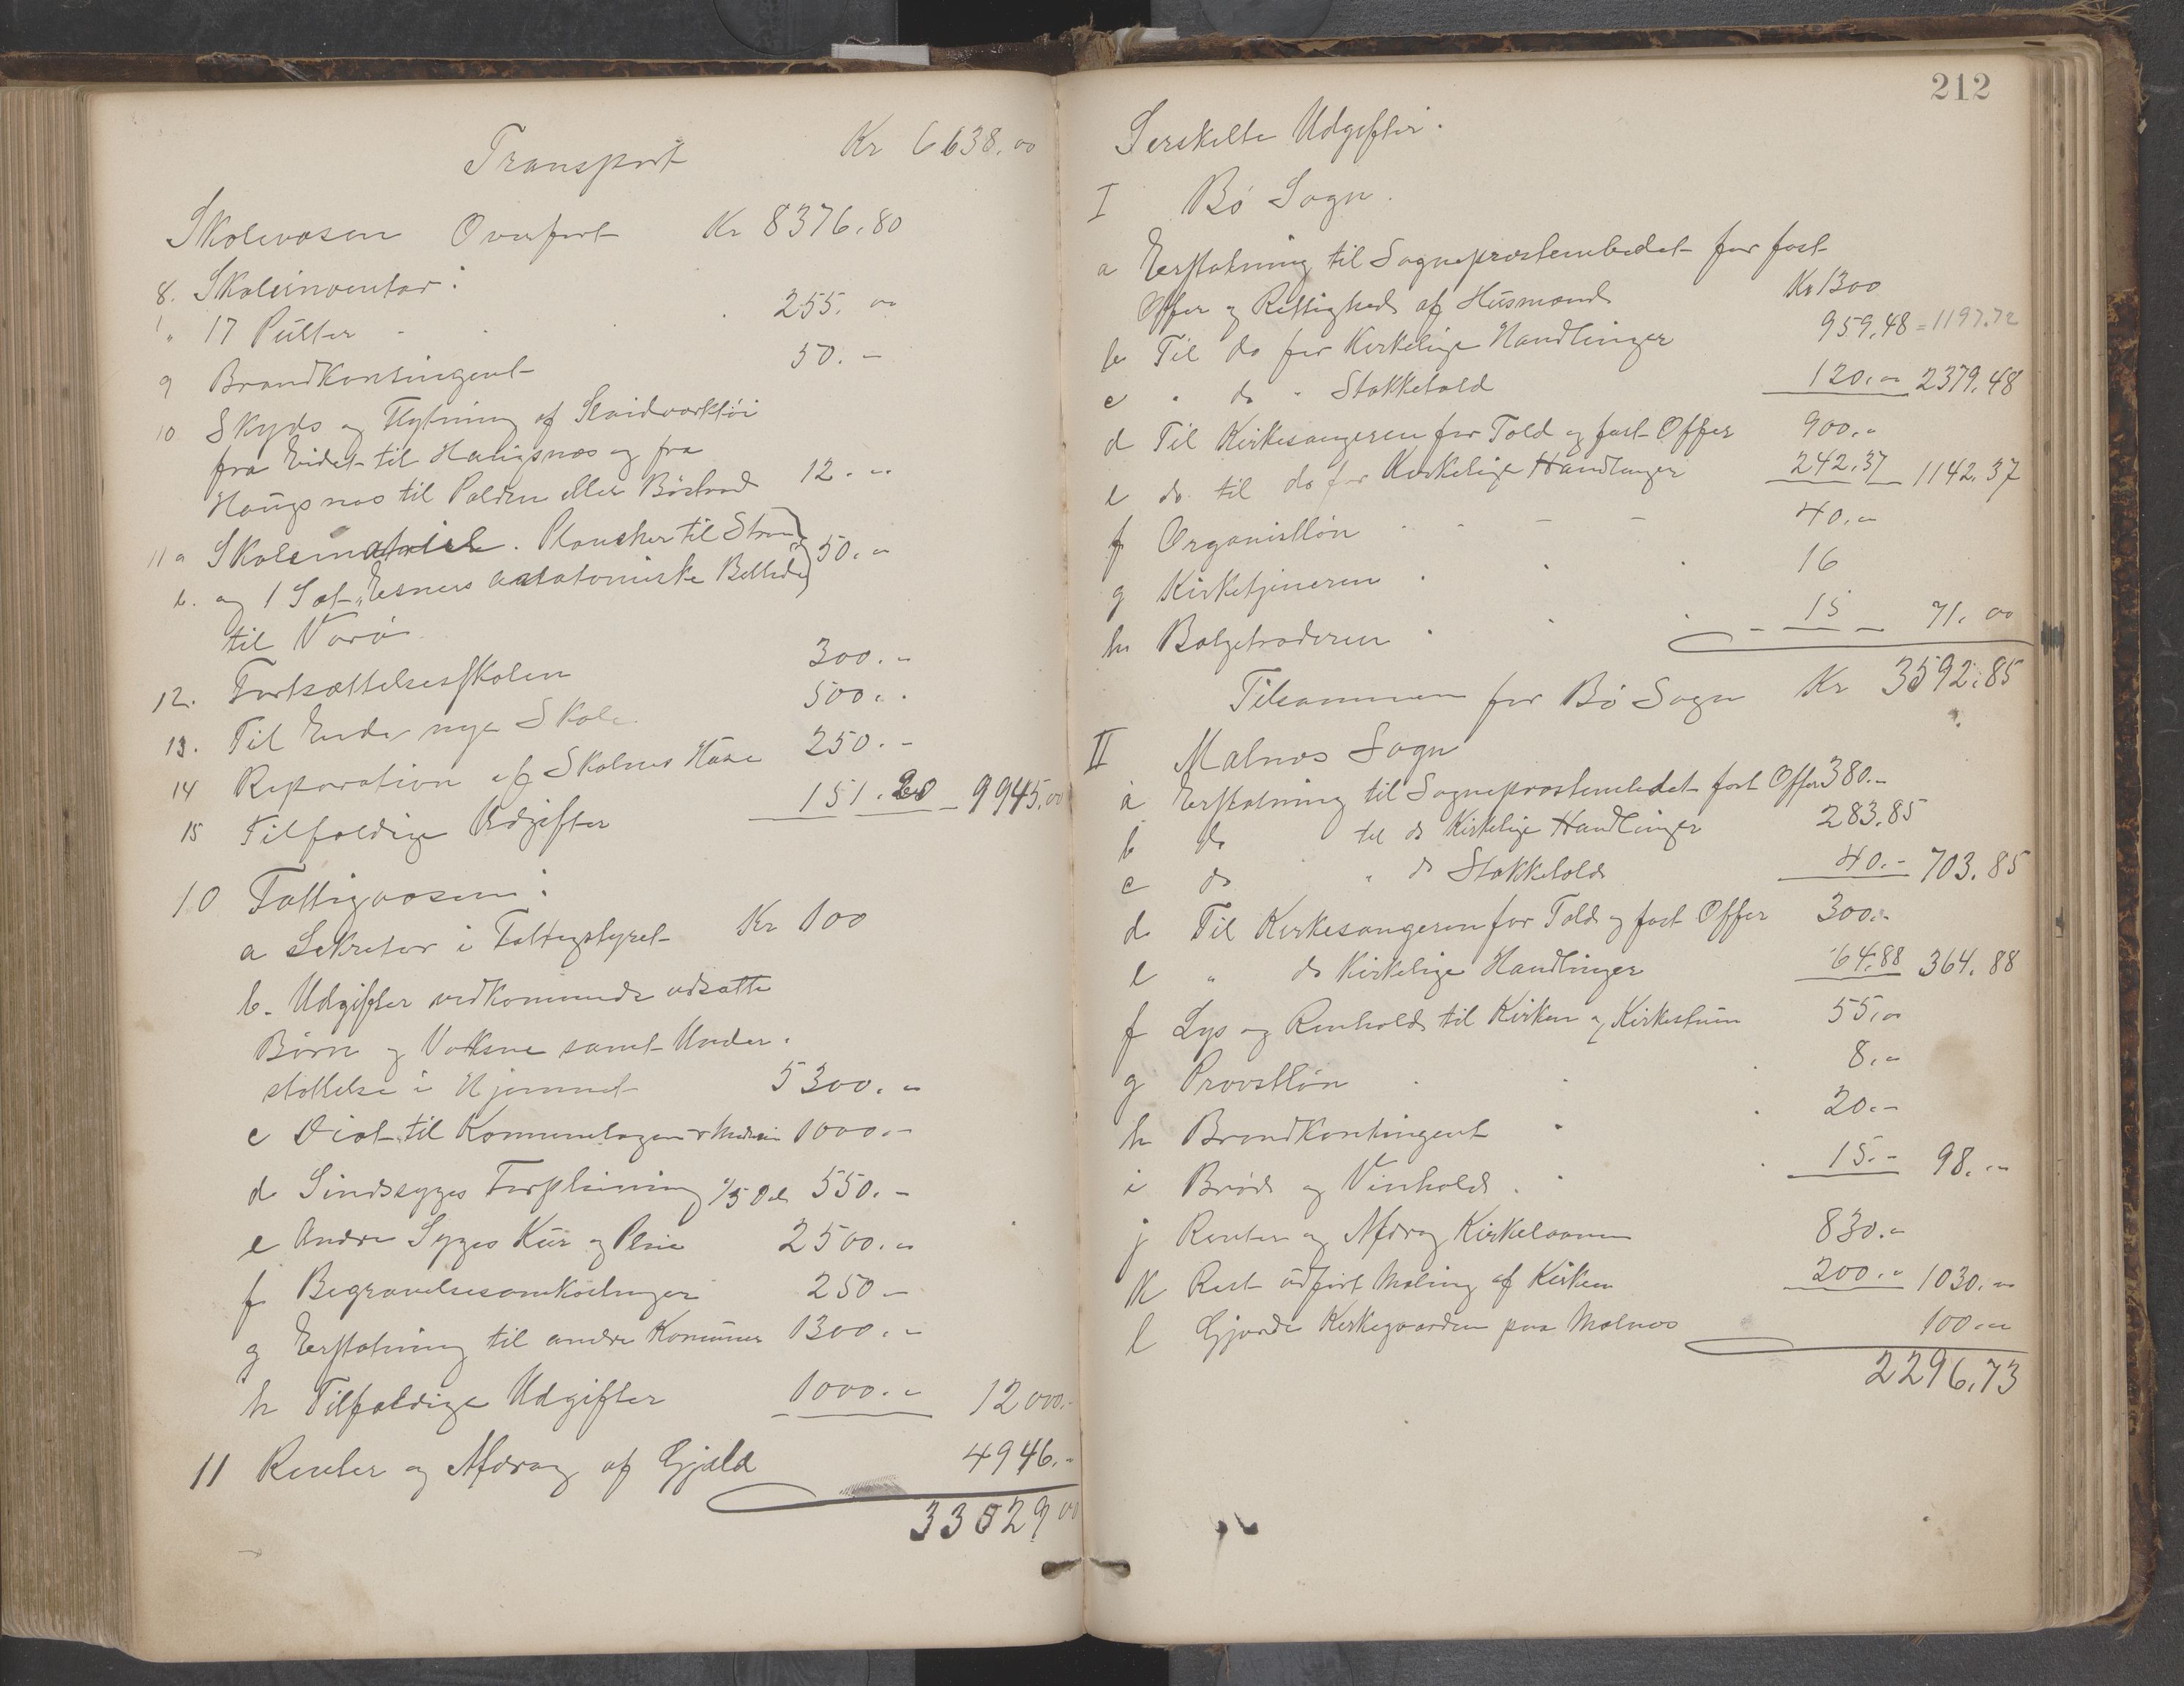 Transport Kr 6638.00
Skolevæsen Overført Kr 8376.80
8. Skoleinventar:
" 17 Pulter 255.00
9 Brandkontingent 50.-
10 Skyds og Flytning af Sløidværktøi
fra Eidet til Haugsnæs og fra
Haugsnæs til Palden eller Bøstrad 12.-
11 a Skolematriel. Plansker til Strøm
b. og 1 Sæt "Esners anatomiske Billeder" 50.-
til Varø
12. Fortsættelsesskolen 300.-
13. Til Ende nye Skole 500.-
14 Reparation af Skolens Huse 250.-
15 Tilfældige Udgifter 151.20 9945.00
10 Fattigvæsen:
a Sekretær i Fattigstyret Kr 100
b. Udgifter vedkommende udsatte
Børn og Voksne samt Under-
støttelse i Hjemmet 5300.-
c Diæt til Kommunelægen + Medisin 1000.-
d Sindssyges Forpleining 1/5 Del 550.-
e Andre Syges Kur og Pleie 2500.-
f Begravelsesomkostninger 250-
g Erstatning til andre Kommuner 1300.-
h Tilfældige Udgifter 1000.- 12000.-
11 Renter og Afdrag af Gjæld 4946.-
33529 00
212
Særskilte Udgifter.
I Bø Sogn.
a Erstatning til Sogneprestembedet for fast
Offer og Rettighed af Husmænd Kr 1300
b Til do for Kirkelige Handlinger 959.48 = 1197.72
c " do " Stokketold 120.- 2379.48
d Til Kirkesangeren for Told og fast Offer 900.-
e do til do for Kirkelige Handlinger 242.37 1142.37
f Organistløn 40.-
g Kirketjeneren 16
h Bælgetræderen 15 71.00
Tilsammen for Bø Sogn Kr 3592.85
II Malnes Sogn
a Erstatning til Sogneprestembedet fast Offer 380.-
b do til do Kirkelige Handlinger 283.85
c do " do Stokketold 40.- 703.85
d Til Kirkesangeren for Told og fast Offer 300.-
e " do Kirkelige Handlinger 64.88 364.88
f Lys og Renhold til Kirken og Kirkestuen 55.00
g Provstløn 8.-
h Brandkontingent 20.-
i Brød og Vinhold 15.- 98.-
j Renter og Afdrag Kirkelaanen 830.-
k Rest udført Maling af Kirken 200.- 1030.-
l Gjærde Kirkegaarden paa Malnes 100.-
2296.73